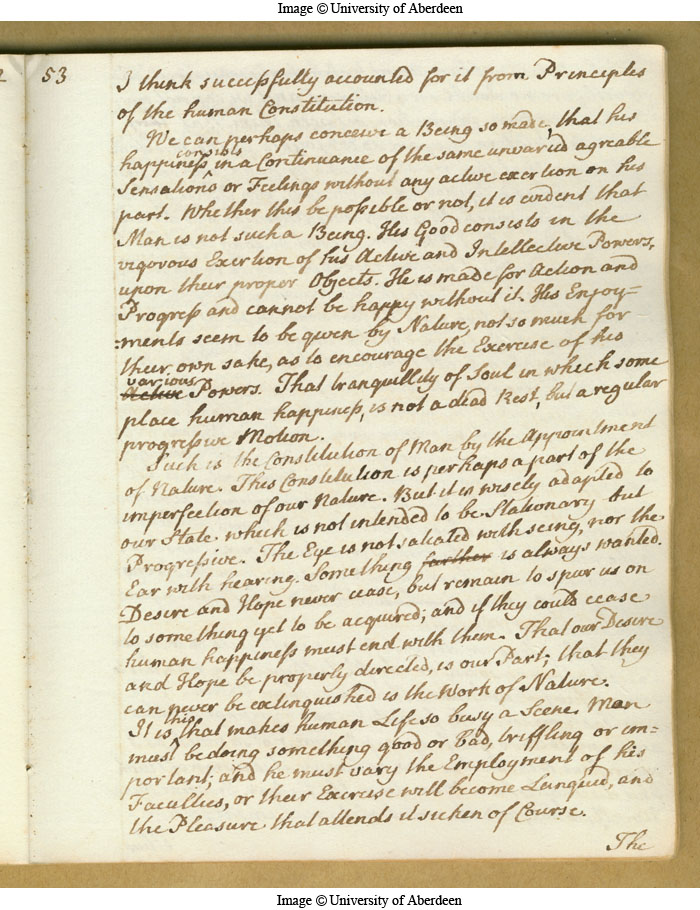 Image © University of Aberdeen
53
I think successfully accounted for it from Principles
of the human Constitution.
We can perhaps conceive a Being so made, that his
happiness consists in a Continuance of the same unvaried agreable
Sensations or Feelings without any active exertion on his
part. Whether this be possible or not, it is evident that
Man is not such a Being. His Good consists in the
vigorous Exertion of his Active and Intellective Powers,
upon their proper Objects. He is made for Action and
Progress and cannot be happy without it. His Enjoy=
=ments seem to be given by Nature, not so much for
their own sake, as to encourage the Exercise of his
various
Active Powers. That tranquillity of Soul in which some
place human happiness, is not a dead Rest, but a regular
progressive Motion.
Such is the Constitution of Man by the Appointment
of Nature. This Constitution is perhaps a part of the
imperfection of our Nature. But it is wisely adapted to
our State which is not intended to be Stationary but
Progressive. The Eye is not satiated with seeing, nor the
Ear with hearing. Something farther is always wanted.
Desire and Hope never cease, but remain to spur us on
to something yet to be acquired; and if they could cease
human happiness must end with them. That our Desire
and Hope be properly directed, is our Part; that they
can never be extinguished is the Work of Nature.
It is this that makes human Life so busy a Scene. Man
must be doing something good or bad, triffling or im=
portant; and he must vary the Employment of his
Faculties, or their Exercise will become Languid, and
the Pleasure that attends it sicken of Course.
The
Image © University of Aberdeen